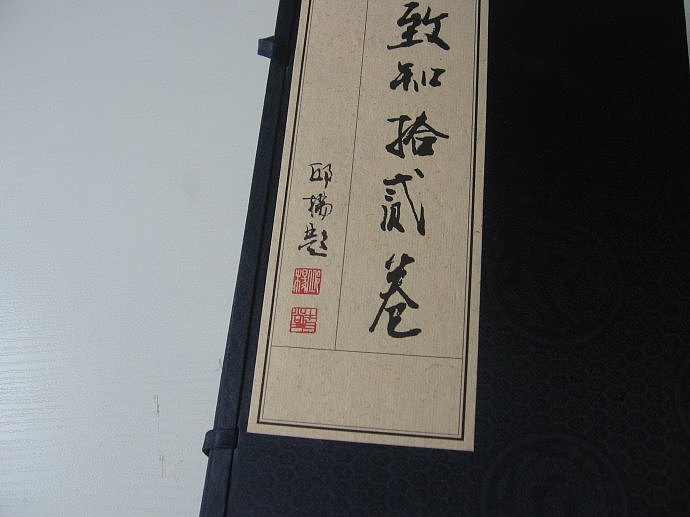 致知拾貳卷
邱楊題